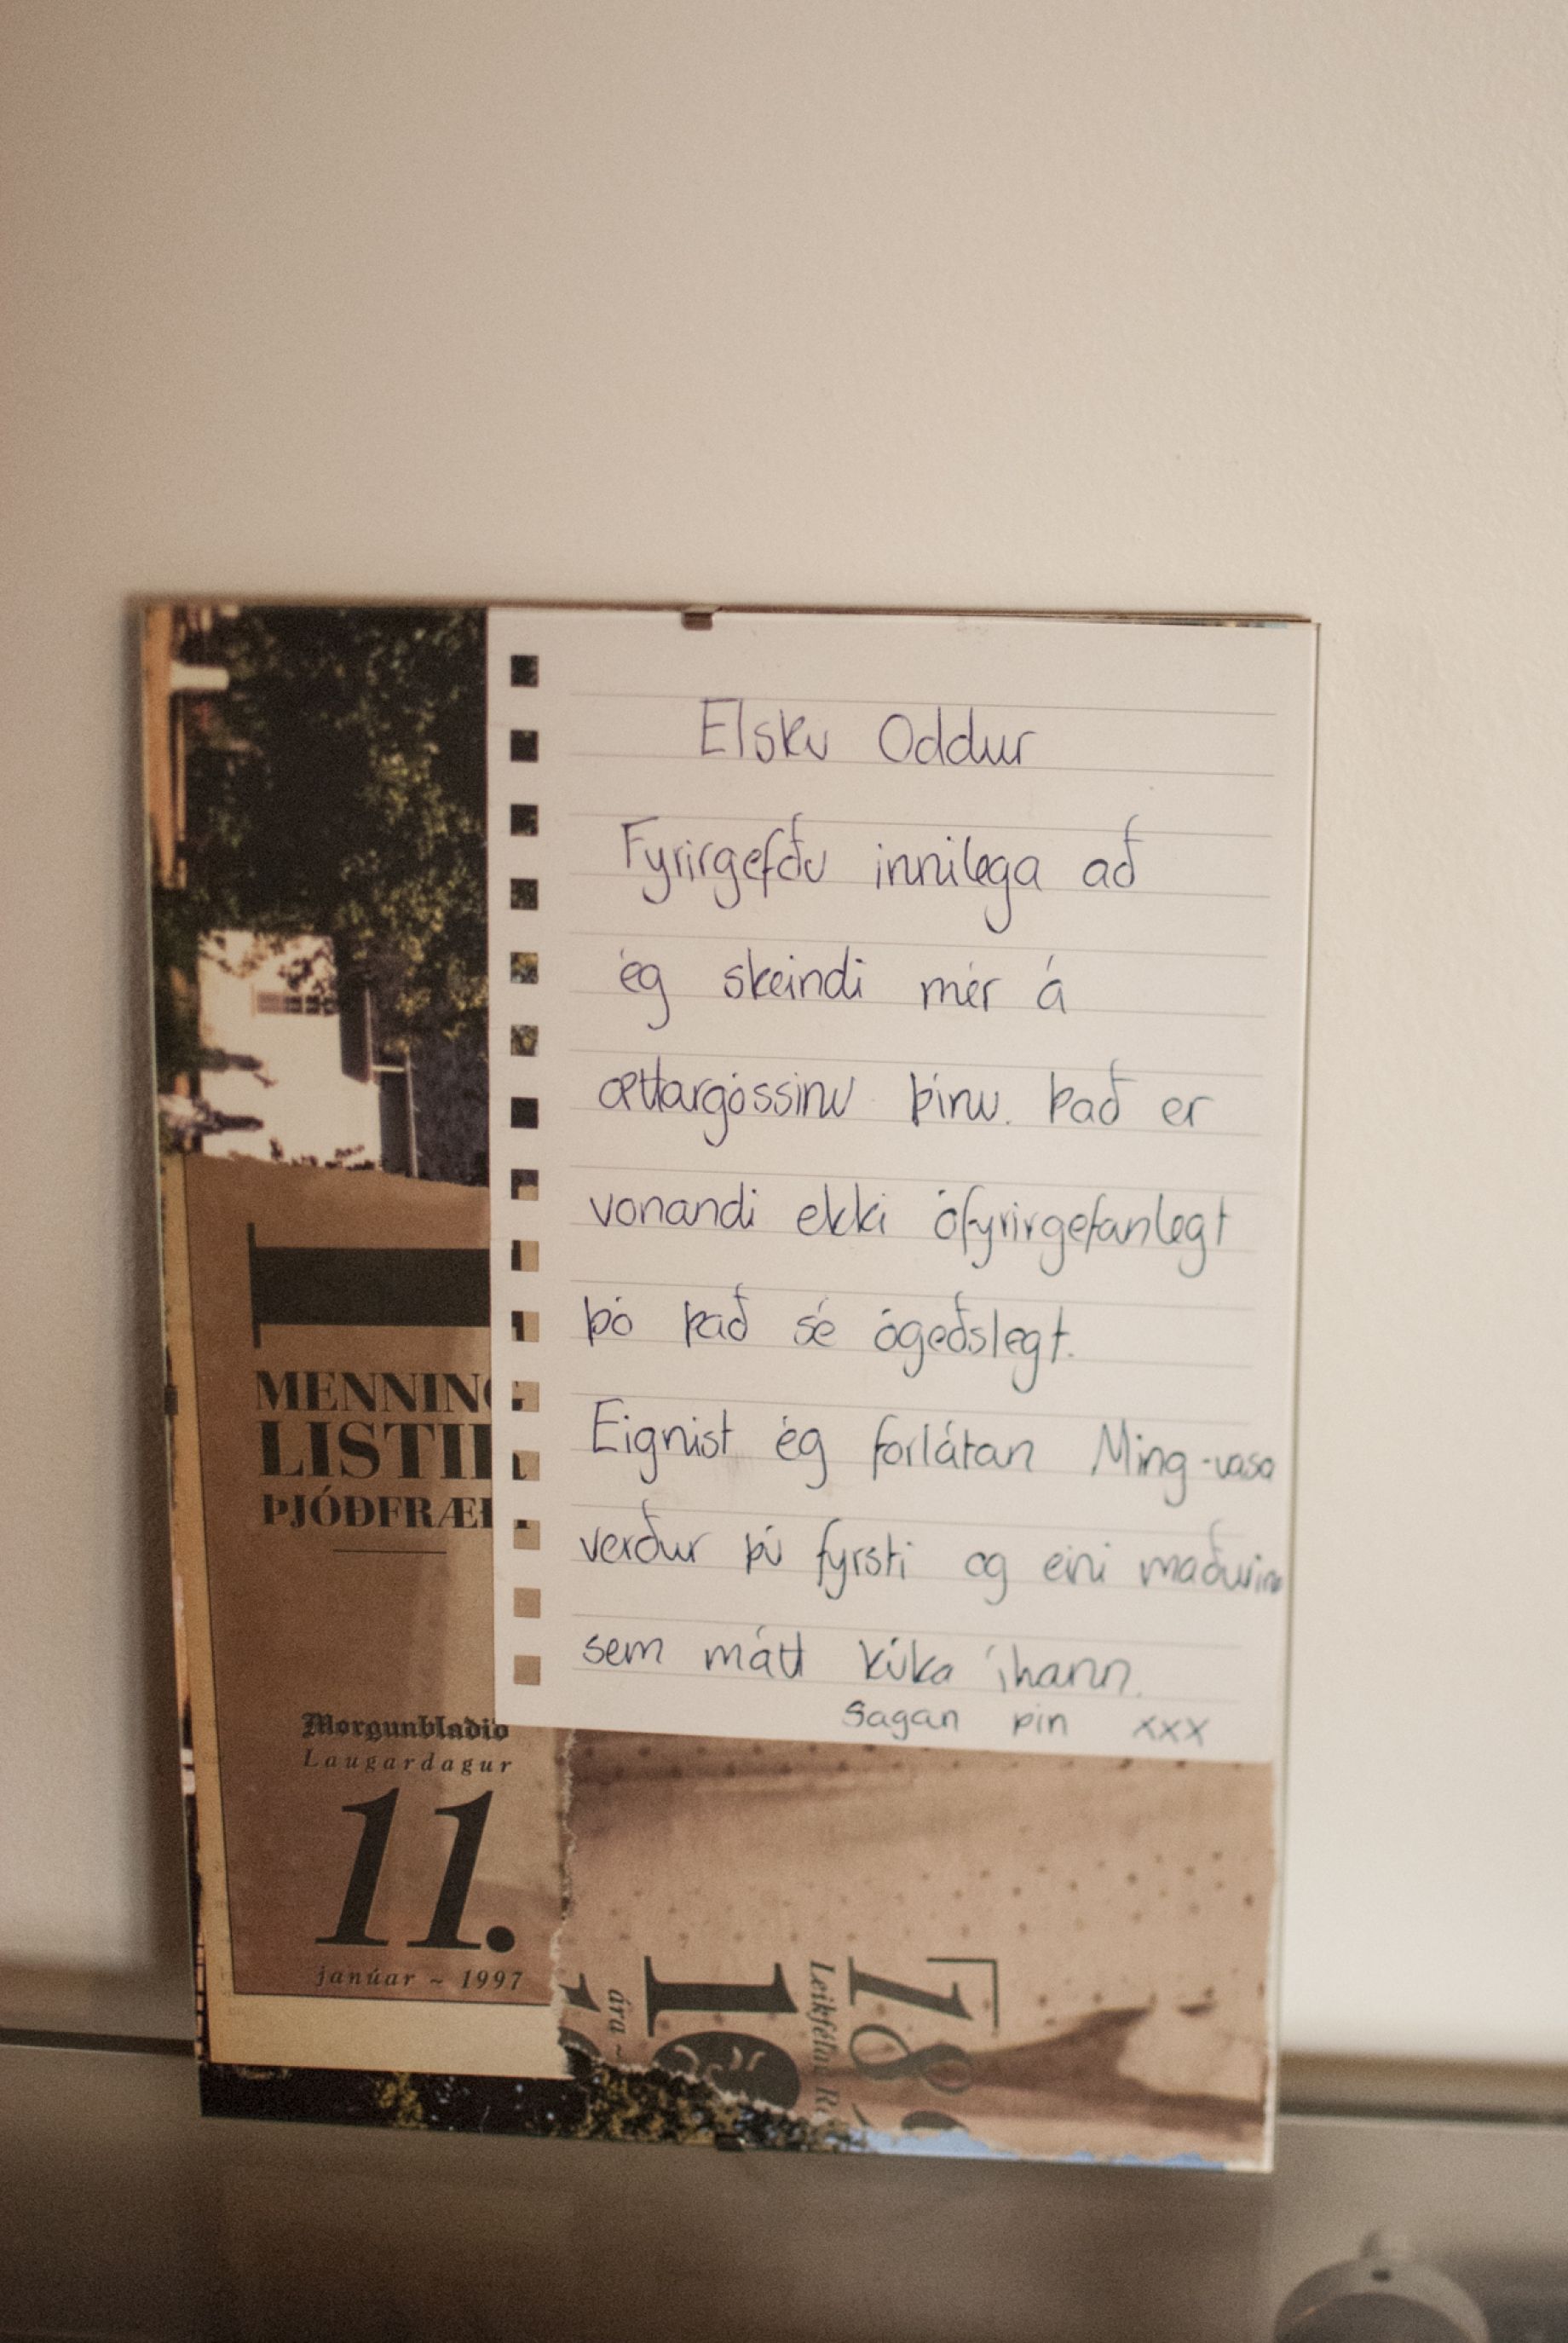 Elsku Oddur
Fyrirgefðu innilega að
ég skeindi mér á
ættargóssinu þínu. Það er
vonandi ekki ófyrirgefanlegt
þó það sé ógeðslegt.
Eignist ég forlátan Ming-vasa
verður þú fyrsti og eini maðurinn
sem mátt kúka í hann.
Sagan þín xxx
MENNING
LISTIR
ÞJÓÐFRÆÐ
Morgunblaðið
Laugardagur
11.
janúar ~ 1997
ára ~
Leikfélag